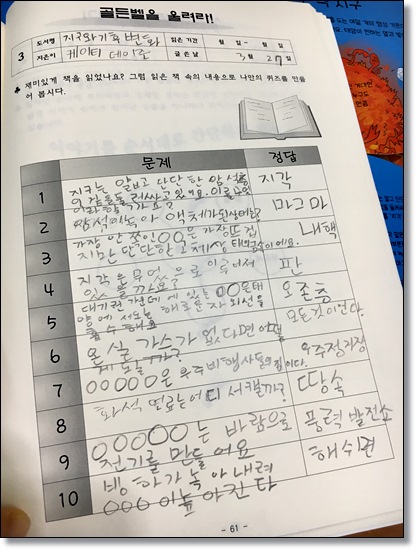 골든벨을 울려라!
3 도서명 지구와 기후 변화 읽은 기간 월 일 ~ 월 일
지은이 케이티 데이노 글 쓴 날 3월 27일
♣ 재미있게 책을 읽었나요? 그럼 읽은 책 속의 내용으로 나만의 퀴즈를 만들
어 봅시다.
문제 정답
1 지구는 얇고 단단한 암석층
이 겉을 둘러싸고 있어요. 이를 지각
2 암석이 녹아 액체가 된 마그마
3 가장 안쪽인 〇〇은 가장 뜨겁
지만 단단한 고체 금속이에요. 내핵
4 지각은 무엇으로 이루어져
있을까요? 판
5 대기권 가운데에 있는 〇〇〇은 태
양에서 오는 해로운 자외선을
줘요 오존층
6 온실가스가 없다면 어떻
게 될까? 모든 것이 언다.
7 〇〇〇〇〇은 우주비행사들의 집이다. 우주정거장
8 화석 연료는 어디서 캘까? 땅속
9 〇〇〇〇〇는 바람으로
전기를 만들어요 풍력 발전소
10 빙하가 녹아내려
〇〇〇이 높아진다 해수면
- 61 -